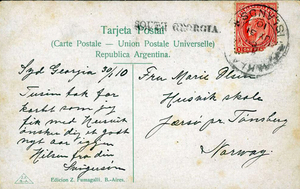 Tarjeta Postal
SOUTH GEORGIA.
(Carte Postale — Union Postale Universelle)
Republica Argentina.
Syd Georgia 30/10
Tusin tak for
kortet som jeg
fik med
ønsker dig et godt
nytt aar igjen
Hilsen fra din
Fru Marie
Husvik skole
pr Tønsberg
Norway.
Edicion Z. Fumagalli. B.-Aires.